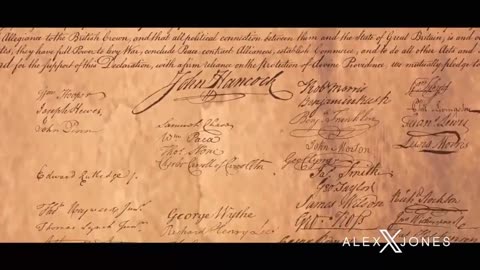 Allegiance to the British Crown, and that all political connection between them and the State of Great Britain, is and o
tes, they have full Power to levy War, conclude Peace, contract Alliances, establish Commerce, and to do all other Acts and
for the support of this Declaration, with a firm reliance on the Protection of divine Providence, we mutually pledge to
John Hancock
Wm Hooper
Joseph Hewes,
John Penn
Edward Rutledge
Thos Heyward Junr.
Thomas Lynch Junr.
Samuel Chase
Wm Paca
Thos Stone
Charles Carroll of Carrollton
George Wythe
Richard Henry Lee
Robt Morris
Benjamin Rush
Benj Franklin
John Morton
Geo Clymer
Jas Smith
Geo Taylor
James Wilson
Geo Ross
Wm Floyd
Phil Livingston
Frans Lewis
Lewis Morris
Richd Stockton
ALEX JONES